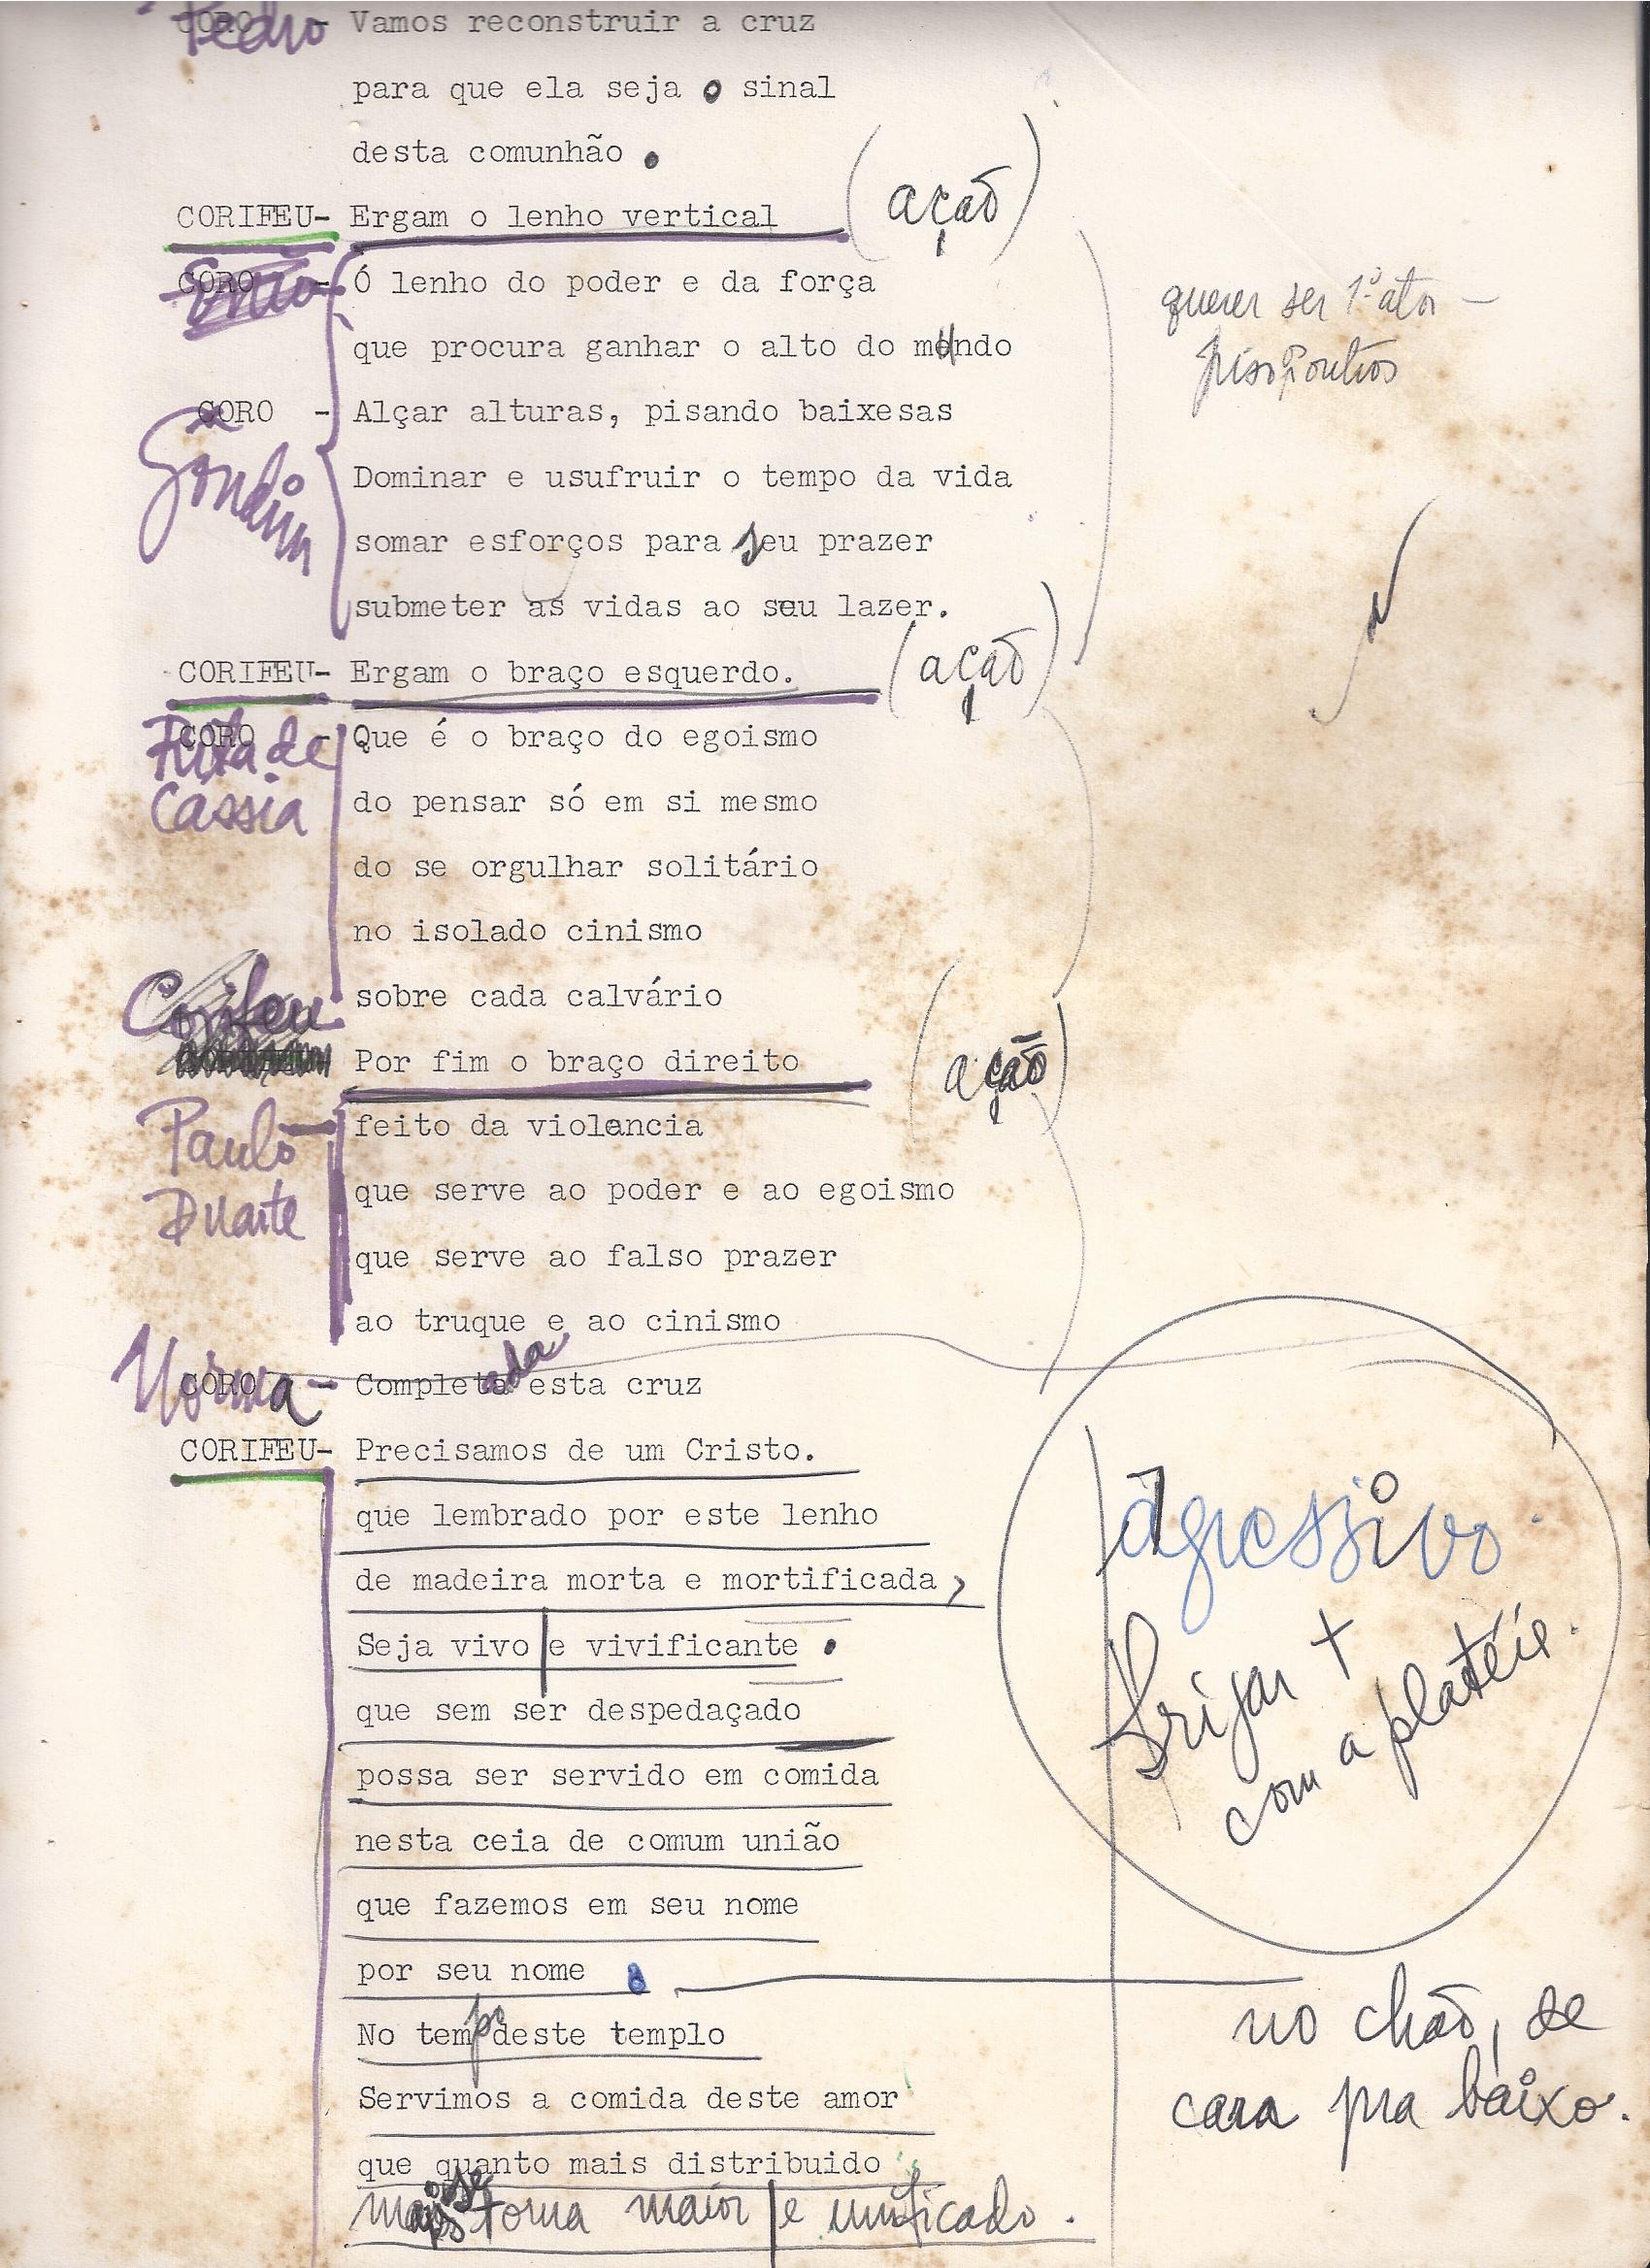 CORO - Vamos reconstruir a cruz
Pedro
para que ela seja o sinal
desta comunhão .
CORIFEU- Ergam o lenho vertical (ação)
CORO - Ó lenho do poder e da força
que procura ganhar o alto do mundo
querer ser 1º ator –
CORO - Alçar alturas, pisando baixesas
Gondim
Dominar e usufruir o tempo da vida
somar esforços para seu prazer
submeter as vidas ao seu lazer.
CORIFEU- Ergam o braço esquerdo. (ação)
CORO - Que é o braço do egoismo
Rita de
Cássia
do pensar só em si mesmo
do se orgulhar solitário
no isolado cinismo
sobre cada calvário
Corifeu
Por fim o braço direito (ação)
Paulo
Duarte
feito da violencia
que serve ao poder e ao egoismo
que serve ao falso prazer
ao truque e ao cinismo
CORO - Completada esta cruz
Norma
CORIFEU- Precisamos de um Cristo.
que lembrado por este lenho
de madeira morta e mortificada,
Seja vivo e vivificante .
que sem ser despedaçado
possa ser servido em comida
nesta ceia de comum união
que fazemos em seu nome
por seu nome
agressivo.
brigar +
com a platéia.
No tempo deste templo
no chão, de
cara pra baixo.
Servimos a comida deste amor
que quanto mais distribuido
mais se torna maior e unificado.